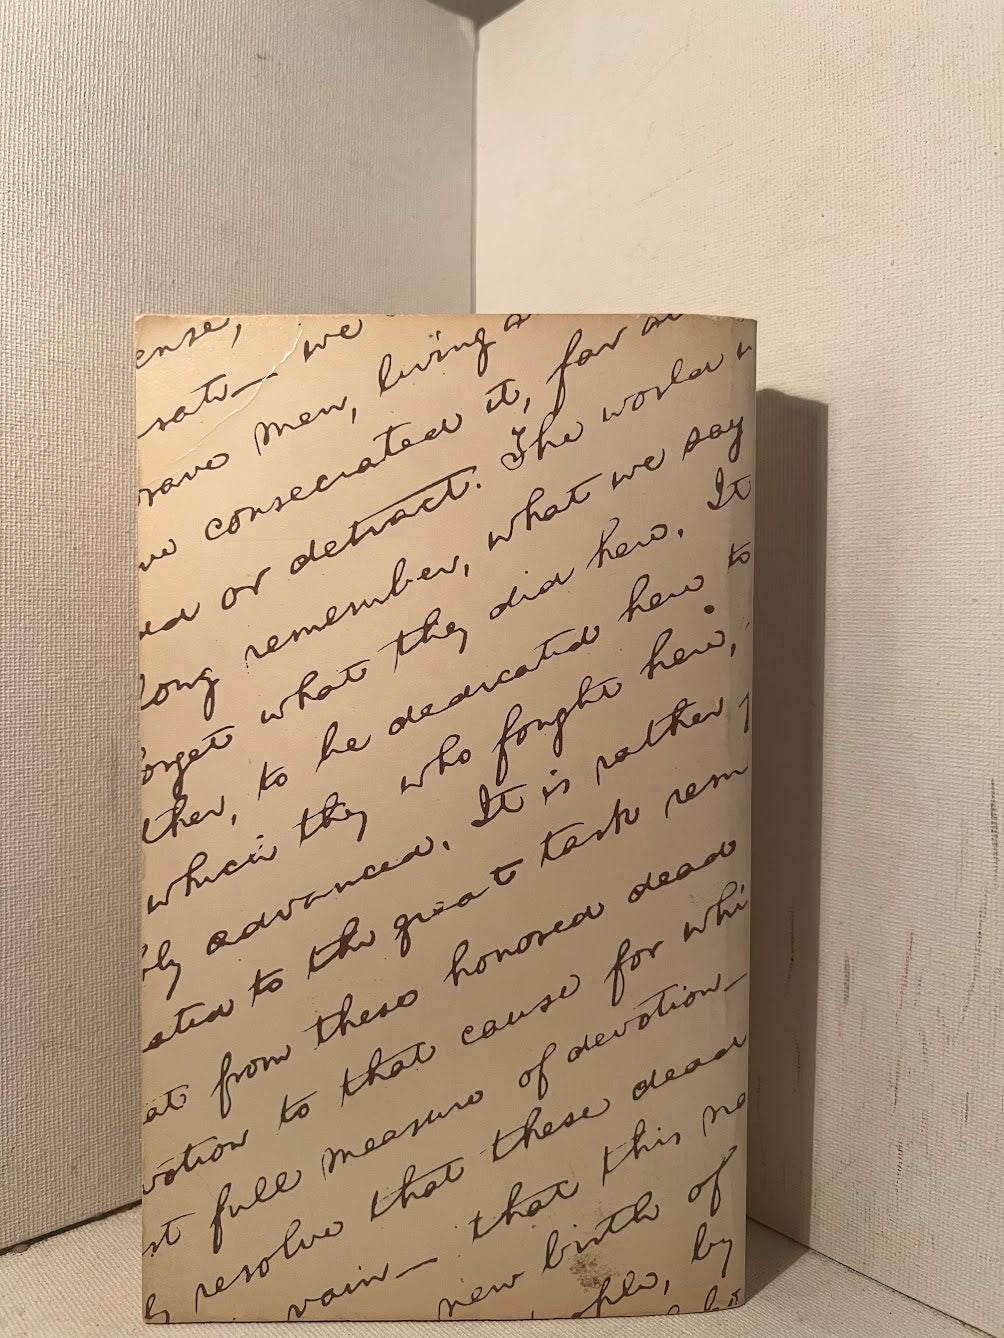 ense,
sate— we
rave men, living a
ve consecrated it, far a
dd or detract. The world
long remember, what we say
orget what they did here. It
ther, to be dedicated here to
which they who fought here,
bly advanced. It is rather
ated to the great task rem
at from these honored dead
votion to that cause for whi
st full measure of devotion—
ly resolve that these dead
vain— that this na
new birth of
ople, by